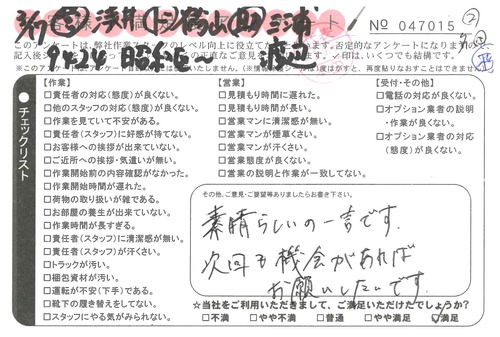 アンケート
№ 047015
このアンケートは、弊社作業スタッフのレベル向上に役立て
否定的なアンケートになりますので
✓印は、いくつでも結構です。
チェックリスト
【作業】
□責任者の対応(態度)が良くない。
□他のスタッフの対応(態度)が良くない。
□作業を見ていて不安がある。
□責任者(スタッフ)に好感が持てない。
□お客様への挨拶が出来ていない。
□ご近所への挨拶・気遣いが無い。
□作業開始前の内容確認がなかった。
□作業開始時間が遅れた。
□荷物の取り扱いが雑である。
□お部屋の養生が出来ていない。
□作業時間が長すぎる。
□責任者(スタッフ)に清潔感が無い。
□責任者(スタッフ)が汗くさい。
□トラックが汚い。
□梱包資材が汚い。
□運転が不安(下手)である。
□靴下の履き替えをしてない。
□スタッフにやる気がみられない。
【営業】
□見積もり時間に遅れた。
□見積もり時間が長い。
□営業マンに清潔感が無い。
□営業マンが煙草くさい。
□営業マンが汗くさい。
□営業態度が良くない。
□営業の説明と作業が一致してない。
【受付・その他】
□電話の対応が良くない。
□オプション業者の説明
・作業が良くない。
□オプション業者の対応
(態度)が良くない。
その他、ご意見・ご要望等ありましたらお書き下さい。
素晴らしいの一言です。
次回も機会があれば
お願いしたいです。
☆当社をご利用いただきまして、ご満足いただけたでしょうか?
□不満 □やや不満 □普通 □やや満足 □満足